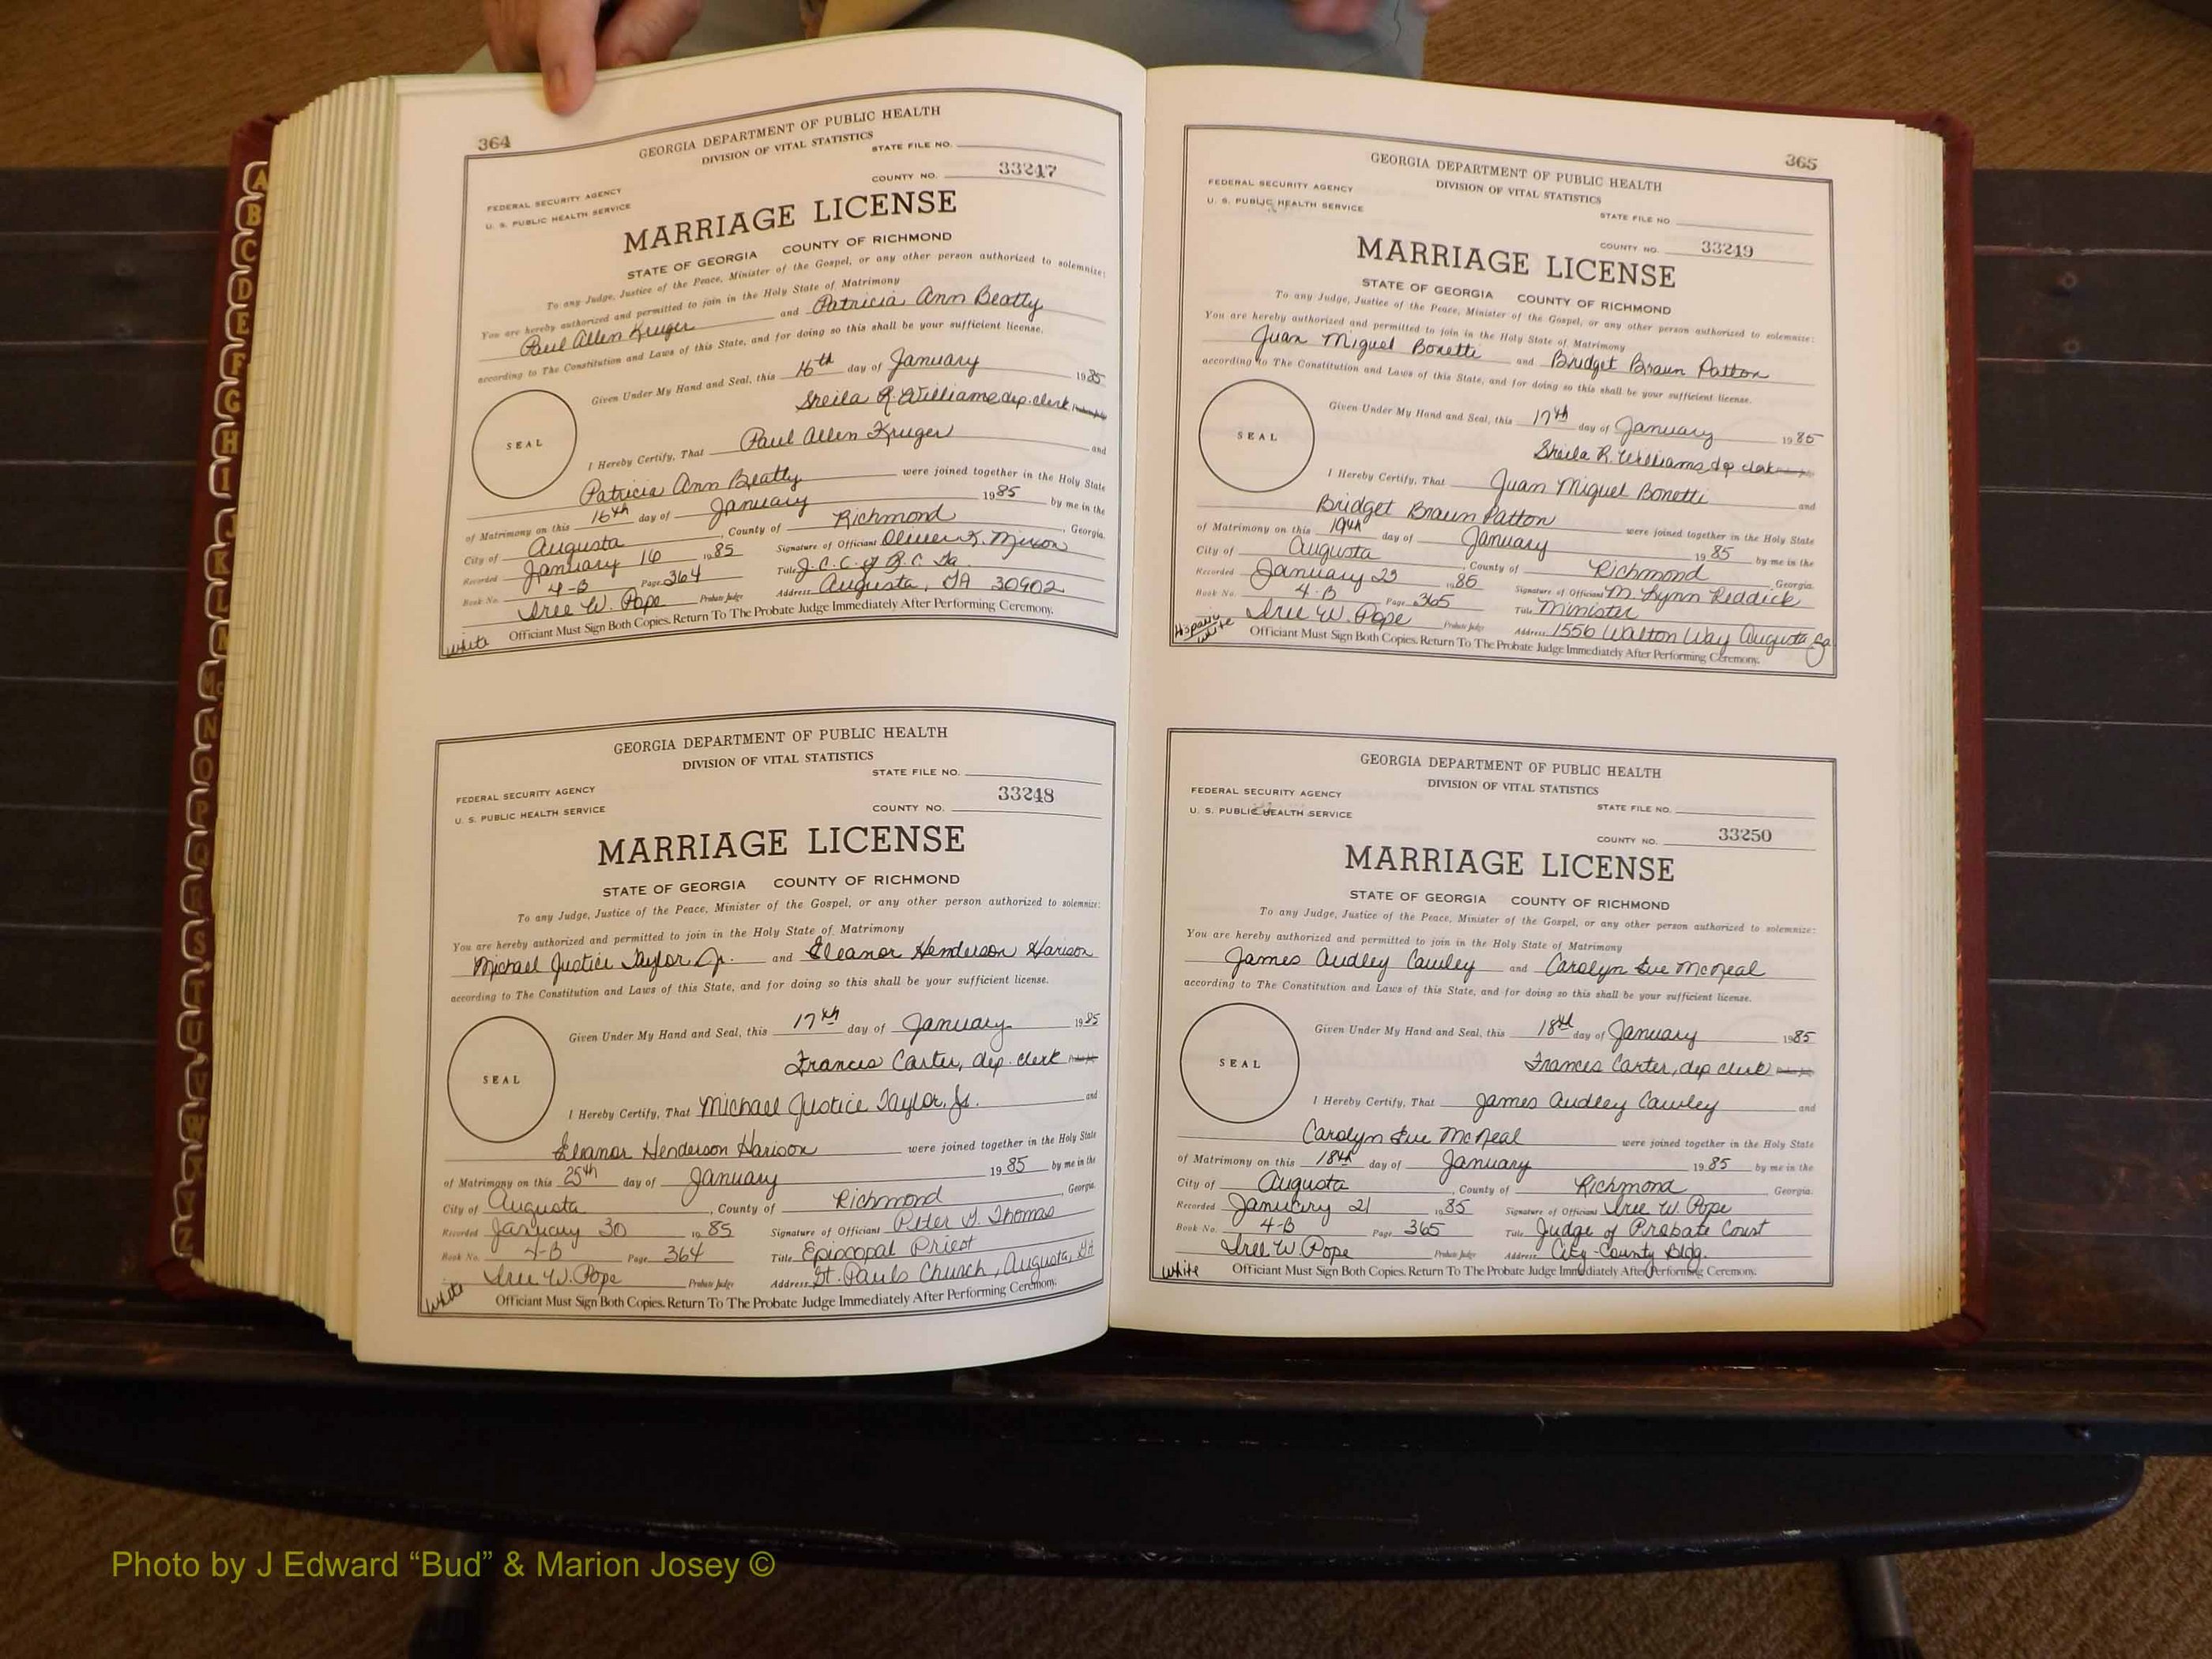 364
GEORGIA DEPARTMENT OF PUBLIC HEALTH
DIVISION OF VITAL STATISTICS
STATE FILE NO.
COUNTY NO. 33247
FEDERAL SECURITY AGENCY
U. S. PUBLIC HEALTH SERVICE
MARRIAGE LICENSE
STATE OF GEORGIA COUNTY OF RICHMOND
To any Judge, Justice of the Peace, Minister of the Gospel, or any other person authorized to solemnize:
You are hereby authorized and permitted to join in the Holy State of Matrimony
Paul Allen Kruger and Patricia Ann Beatty
according to The Constitution and Laws of this State, and for doing so this shall be your sufficient license.
Given Under My Hand and Seal, this 16th day of January 1985
Sheila R. Williams dep. clerk
SEAL
I Hereby Certify, That Paul Allen Kruger and
Patricia Ann Beatty were joined together in the Holy State
of Matrimony on this 16th day of January 1985 by me in the
City of Augusta, County of Richmond, Georgia.
Recorded January 16 1985 Signature of Officiant Oliver K. Mixon
Book No. 4-B Page 364 Title J.C.C. of R.C. Ga.
Iree W. Pope Probate Judge Address Augusta, GA 30902
White Officiant Must Sign Both Copies. Return To The Probate Judge Immediately After Performing Ceremony.
GEORGIA DEPARTMENT OF PUBLIC HEALTH
DIVISION OF VITAL STATISTICS
STATE FILE NO.
COUNTY NO. 33248
FEDERAL SECURITY AGENCY
U. S. PUBLIC HEALTH SERVICE
MARRIAGE LICENSE
STATE OF GEORGIA COUNTY OF RICHMOND
To any Judge, Justice of the Peace, Minister of the Gospel, or any other person authorized to solemnize:
You are hereby authorized and permitted to join in the Holy State of Matrimony
Michael Justice Taylor, Jr. and Eleanor Henderson Harison
according to The Constitution and Laws of this State, and for doing so this shall be your sufficient license.
Given Under My Hand and Seal, this 17th day of January 1985
Frances Carter, dep. clerk
SEAL
I Hereby Certify, That Michael Justice Taylor, Jr. and
Eleanor Henderson Harison were joined together in the Holy State
of Matrimony on this 25th day of January 1985 by me in the
City of Augusta, County of Richmond, Georgia.
Recorded January 30 1985 Signature of Officiant Peter G. Thomas
Book No. 4-B Page 364 Title Episcopal Priest
Iree W. Pope Probate Judge Address St. Pauls Church, Augusta, Ga
White Officiant Must Sign Both Copies. Return To The Probate Judge Immediately After Performing Ceremony.
365
GEORGIA DEPARTMENT OF PUBLIC HEALTH
DIVISION OF VITAL STATISTICS
FEDERAL SECURITY AGENCY
U. S. PUBLIC HEALTH SERVICE
STATE FILE NO.
COUNTY NO. 33249
MARRIAGE LICENSE
STATE OF GEORGIA COUNTY OF RICHMOND
To any Judge, Justice of the Peace, Minister of the Gospel, or any other person authorized to solemnize:
You are hereby authorized and permitted to join in the Holy State of Matrimony
Juan Miguel Bonetti and Bridget Braun Patton
according to The Constitution and Laws of this State, and for doing so this shall be your sufficient license.
Given Under My Hand and Seal, this 17th day of January 1985
Sheila R. Williams, dep clerk
SEAL
I Hereby Certify, That Juan Miguel Bonetti and
Bridget Braun Patton were joined together in the Holy State
of Matrimony on this 19th day of January 1985 by me in the
City of Augusta, County of Richmond, Georgia.
Recorded January 23 1985 Signature of Officiant M. Lynn Reddick
Book No. 4-B Page 365 Title Minister
Iree W. Pope Probate Judge Address 1556 Walton Way Augusta Ga.
Hispanic White Officiant Must Sign Both Copies. Return To The Probate Judge Immediately After Performing Ceremony.
GEORGIA DEPARTMENT OF PUBLIC HEALTH
DIVISION OF VITAL STATISTICS
FEDERAL SECURITY AGENCY
U. S. PUBLIC HEALTH SERVICE
STATE FILE NO.
COUNTY NO. 33250
MARRIAGE LICENSE
STATE OF GEORGIA COUNTY OF RICHMOND
To any Judge, Justice of the Peace, Minister of the Gospel, or any other person authorized to solemnize:
You are hereby authorized and permitted to join in the Holy State of Matrimony
James Audley Cawley and Carolyn Sue McNeal
according to The Constitution and Laws of this State, and for doing so this shall be your sufficient license.
Given Under My Hand and Seal, this 18th day of January 1985
Frances Carter, dep clerk
SEAL
I Hereby Certify, That James Audley Cawley and
Carolyn Sue McNeal were joined together in the Holy State
of Matrimony on this 18th day of January 1985 by me in the
City of Augusta, County of Richmond Georgia.
Recorded January 21 1985 Signature of Officiant Iree W. Pope
Book No. 4-B Page 365 Title Judge of Probate Court
Iree W. Pope Probate Judge Address City-County Bldg.
White Officiant Must Sign Both Copies. Return To The Probate Judge Immediately After Performing Ceremony.
Photo by J Edward “Bud” & Marion Josey ©